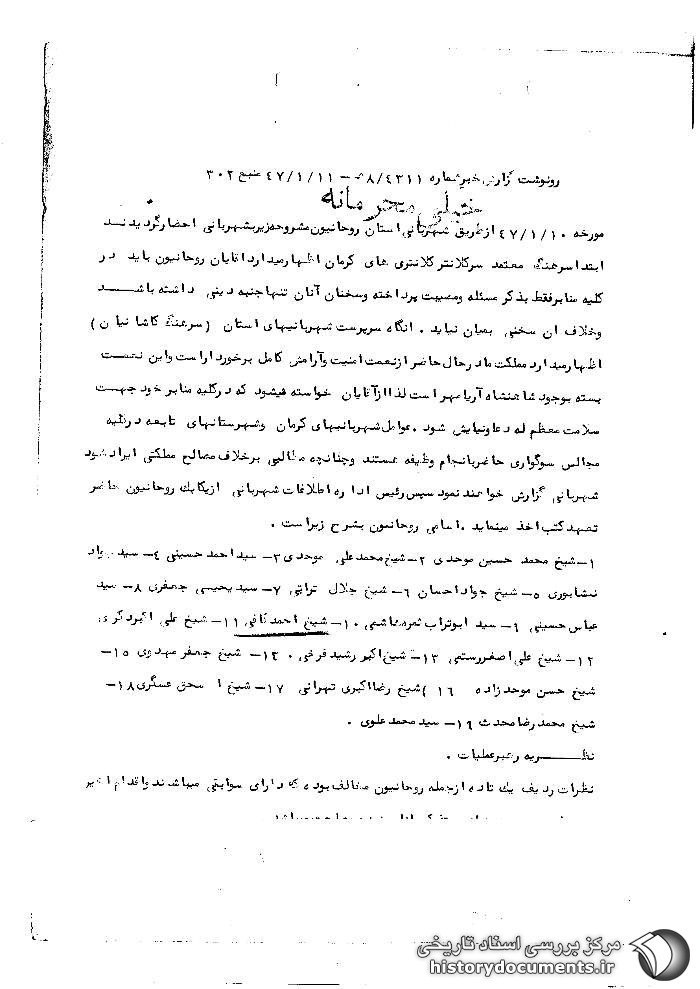 رونوشت گزارش خبر شماره ۸/۴۳۱۱ه – ۴۷/۱/۱۱ منبع ۳۰۲
خیلی محرمانه
مورخه ۴۷/۱/۱۰ از طریق شهربانی استان روحانیون مشروحه زیر بشهربانی احضار گردیدند
ابتدا سرهنگ معتمد سرکلانتر کلانتری های کرمان اظهار میدارد اقایان روحانیون باید در
کلیه منابر فقط بذکر مسئله ومصیبت پرداخته وسخنان آنان تنها جنبه دینی داشته باشد
وخلاف ان سخنی بمیان نیاید . انگاه سرپرست شهربانیهای استان (سرهنگ کاشانیان)
اظهار میدارد مملکت ما در حال حاضر از نعمت امنیت وآرامش کامل برخوردار است واین نعمت
بسته بوجود شاهنشاه آریامهر است لذا از آقایان خواسته میشود که در کلیه منابر خود جهت
سلامت معظم له دعا ونیایش شود . عوامل شهربانیهای کرمان وشهرستانهای تابعه در کلیه
مجالس سوگواری حاضر بانجام وظیفه هستند وچنانچه مطالبی برخلاف مصالح مملکتی ایراد شود
شهربانی گزارش خواهند نمود سپس رئیس اداره اطلاعات شهربانی از یکایك روحانیون حاضر
تعهد کتب اخذ مینماید . اسامی روحانیون بشرح زیر است .
۱– شیخ محمد حسین موحدی ۲– شیخ محمد علی موحدی ۳– سید احمد حسینی ۴– سید جواد
نیشابوری ۵– شیخ جواد احسان ۶– شیخ جلال ترابی ۷– سید یحیی جعفری ۸– سید
عباس حسینی ۹– سید ابوتراب ثمره هاشمی ۱۰– شیخ احمد کافی ۱۱– شیخ علی اکبر ذکری
۱۲– شیخ علی اصغر رستمی ۱۳– شیخ اکبر رشید فرخی . ۱۴– شیخ جعفر مهدوی ۱۵–
شیخ حسن موحد زاده ۱۶) شیخ رضا اکبری تهرانی ۱۷– شیخ ا سحق عسگری ۱۸–
شیخ محمد رضا محدث ۱۹– سید محمد علوی .
نظــریه رهبر عملیات .
نظرات ردیف یك تا ده از جمله روحانیون مخالف بوده که دارای سوابقی میباشند واقدام اخیر
مرکز بررسی اسناد تاریخی
historydocuments.ir